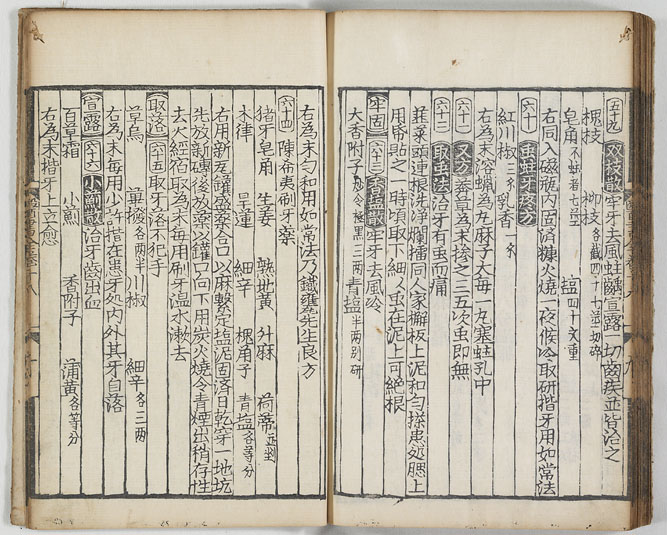 五十九 双枝散 牢牙去風蛀齲宣露一切齒疾並皆治之
槐枝 柳枝 各截四十七莖切碎
皂角 不蛀者七莖 塩四十文重
右同入磁瓶內固済糠火燒一夜候冷取研揩牙用如常法
六十 虫蛀牙疼方
紅川椒 乳香
右為末溶蠟為丸麻子大每一丸塞蛀孔中
六十一 又方 蓽蕟為末摻之三五次虫即無
六十二 取虫法 治牙有虫而痛
韮菜頭連根洗淨爛擂同人家獬板上泥和勻搽患処腮上
用帋貼之一時頃取下細人虫在泥上可絕根
牢固 六十三 香塩散 牢牙去風冷
大香附子 炒令極黑三両 青塩 半両別研
右為末勻和用如常法乃鐵甕先生良方
六十四 陳希夷刷牙藥
猪牙皂角 生姜 熟地黃 升麻 荷蒂
木律 旱蓮 細辛 槐角子 青塩 各等分
右用新瓦鑵盛藥合口以麻繫定塩泥固済日乾穿一地坑
先放新磚後放藥以鑵口向下用炭火燒令青煙出稍存性
去火經宿取為末每用刷牙温水漱去
取落 六十五 取牙落不犯手
草烏 蓽撥 各両半 川椒 細辛 各三両
右為末每用少許揩在患牙処內外其牙自落
宣露 六十六 小薊散 治牙齒出血
百草霜 小薊 香附子 蒲黃 各等分
右為末揩牙上立愈